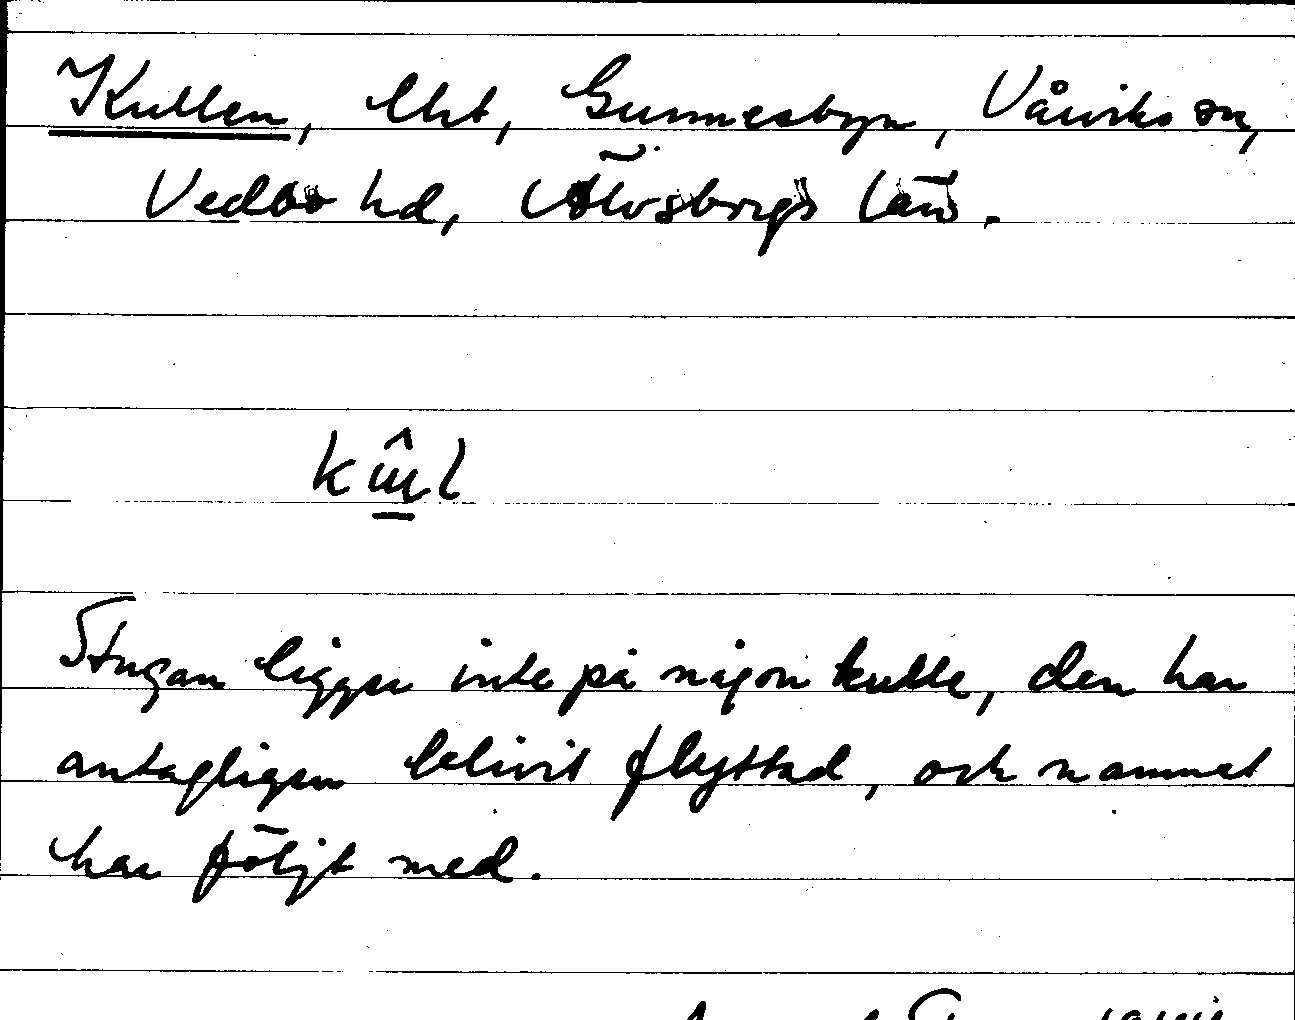 Kullen, lht, Gunnesbyn, Vårviks sn,
Vedbo hd, Älvsborgs län.
Stugan ligger inte på någon kulle, den har
antagligen blivit flyttad, och namnet
har följt med.